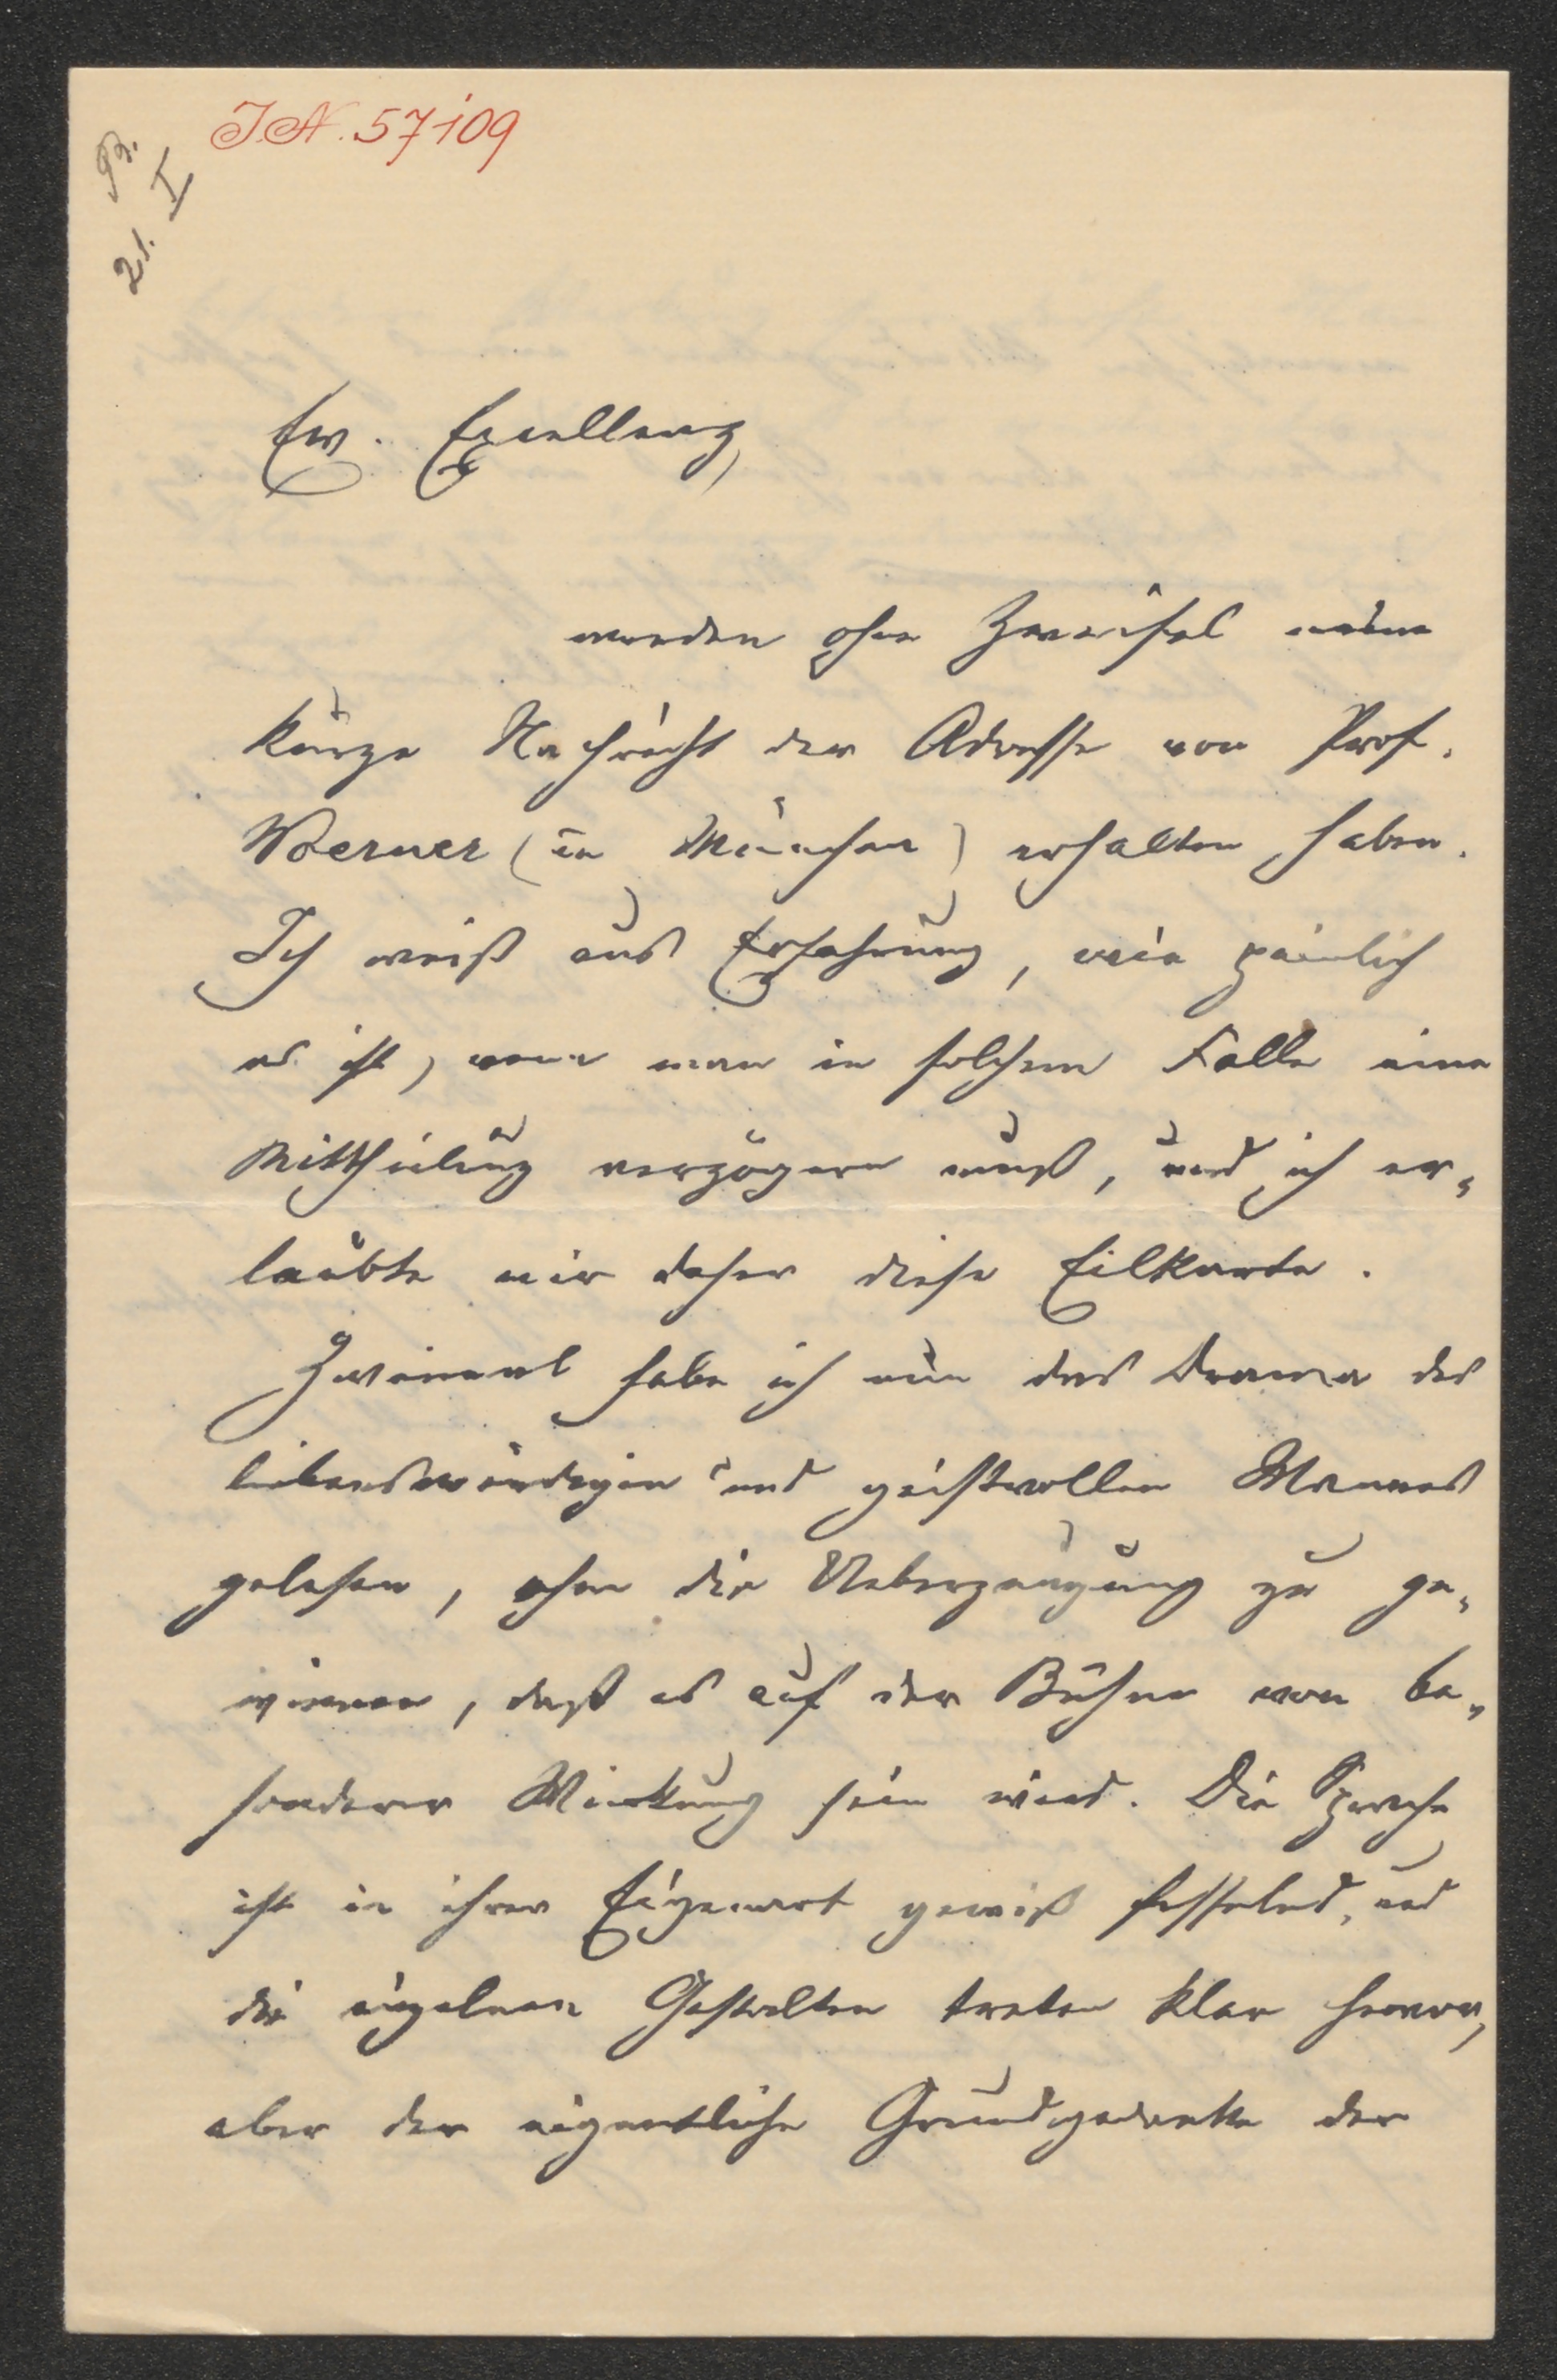 I.N. 57109
B.
21. I
Ew. Excellenz,
werden ohne Zweifel meine
kurze Nachricht der Adresse von Prof.
Woerner (in München) erhalten haben.
Ich weiß aus Erfahrung, wie peinlich
es ist, wenn man in solchem Falle eine
Mittheilung verzögern muß, und ich er-
laubte mir daher diese Eilkarte.
Zweimal habe ich nun das Drama des
liebenswürdigen und geistvollen Mannes
gelesen, ohne die Ueberzeugung zu ge-
winnen, daß es auf der Bühne von be-
sonderer Wirkung sein wird. Die Sprache
ist in ihrer Eigenart gewiß fesselnd, und
die einzelnen Gestalten treten klar hervor,
aber der eigentliche Grundgedanke der